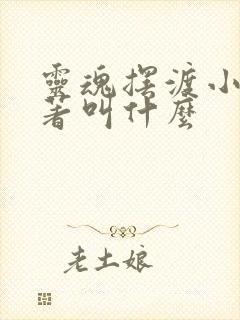 靈魂擺渡小
著叫什麼
老土娘